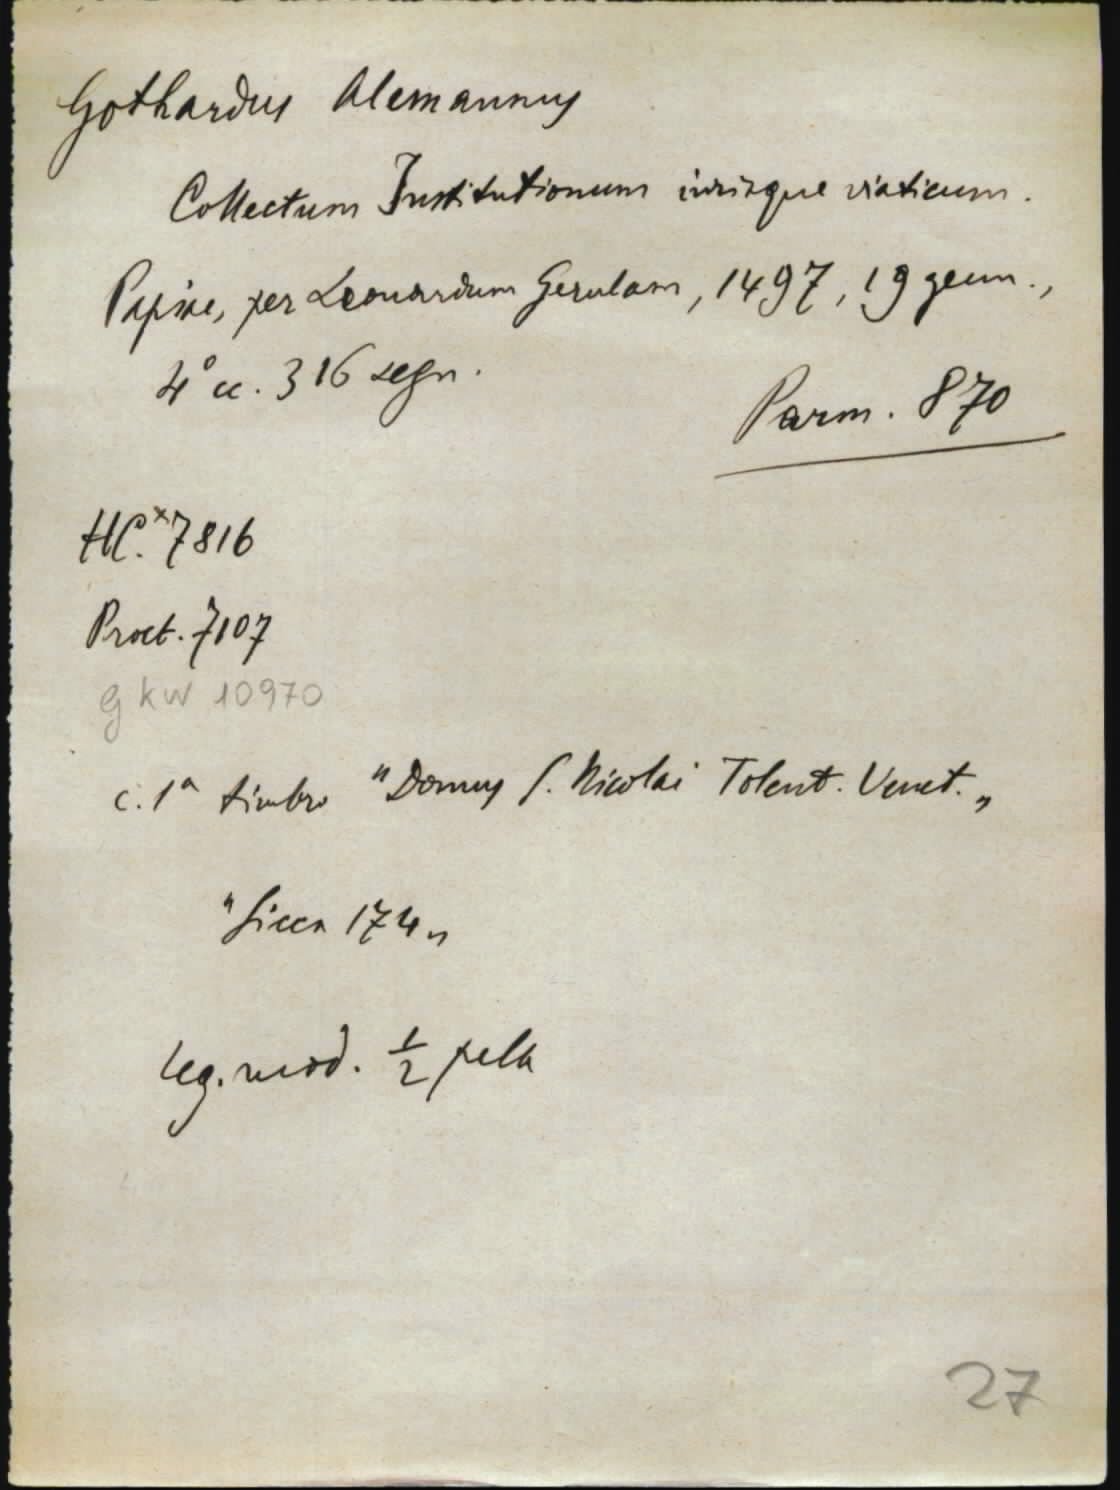 Gothardus Alemannus
Collectum Institutionum iurisque viaticum.
Papiae, per Leonardum Gerulam, 1497, 19 genn.,
4° cc. 316 segn.
Parm. 870
HC.x7816
Proct. 7107
gkw 10970
c. 1a timbro "Domus S. Nicolai Tolent. Venet.„
"Sicca 174„
leg. mod. 1/2 pelle
27